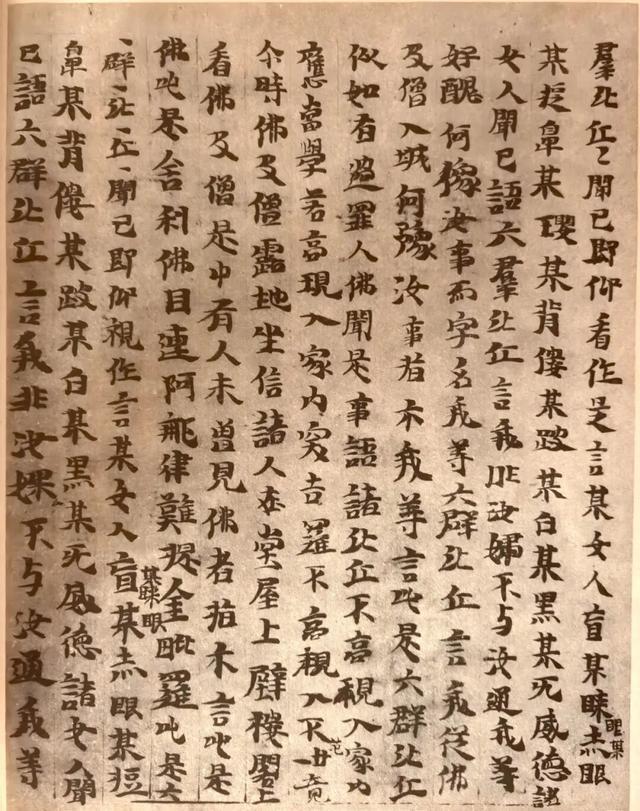 羣比丘〻聞已即仰看作是言某女人盲某睞眼某赤眼
某挃鼻某癭某背僂某跛某白某黑某无威德諸
女人聞已語六羣比丘言我非汝婦不与汝通我等
好醜何豫汝事而字名我等六群比丘言我從佛
及僧入城何豫汝事若不我等言此是六群比丘
似如有過罪人佛聞是事語諸比丘不高視入家內
應當學若高視入家內突吉羅不高視入不犯竟
尒時佛及僧露地坐信諸人在堂屋上壁樓閣上
看佛及僧是中有人未曾見佛者指示言此是
佛此是舍利佛目連阿那律難提金毗羅此是六
群〻比〻丘〻聞已即仰視作言某女人盲某睞眼某赤眼某挃
鼻某背僂某跛某白某黑某无威德諸女人聞
已語六群比丘言我非汝婇不与汝通我等